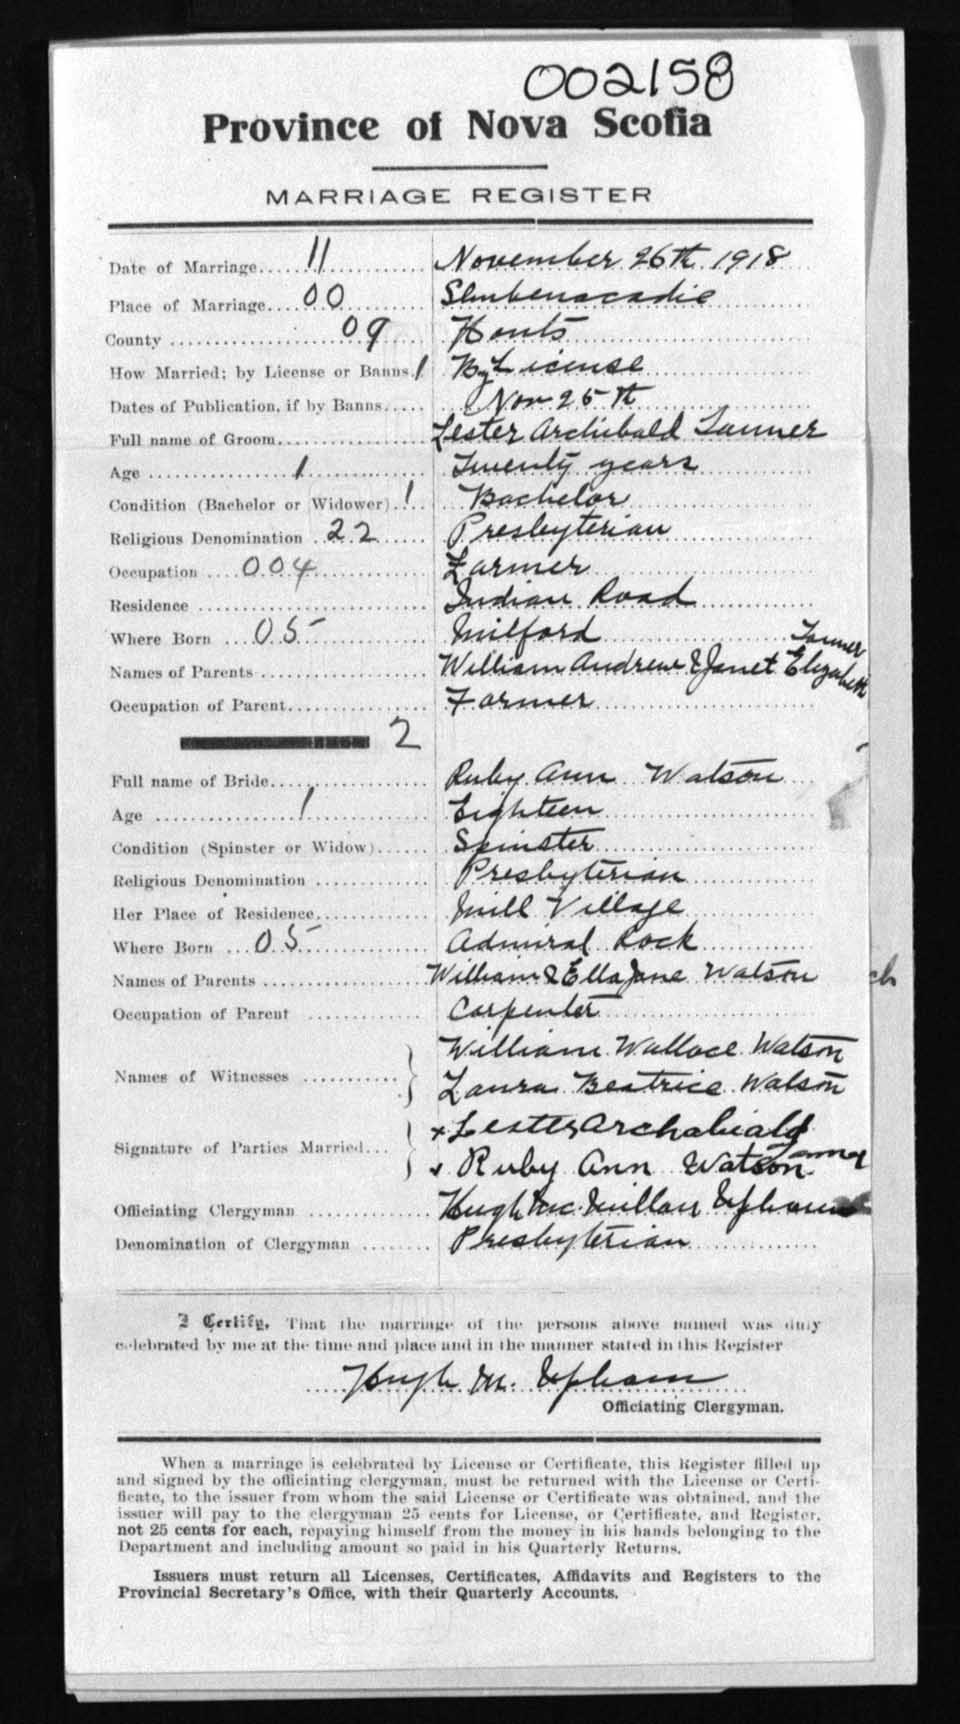 002158
Province of Nova Scotia
MARRIAGE REGISTER
Date of Marriage 11 November 26th 1918
Place of Marriage 00 Shubenacadie
County 09 Hants
How Married; by License or Banns 1 By License
Dates of Publication, if by Banns Nov 25th
Full name of Groom Lester Archibald Tanner
Age 1 Twenty years
Condition (Bachelor or Widower) 1 Bachelor
Religious Denomination 22 Presbyterian
Occupation 004 Farmer
Residence Indian Road
Where Born 05 Milford
Names of Parents William Andrew & Janet Elizabeth Tanner
Occupation of Parent Farmer
2
Full name of Bride Ruby Ann Watson
Age 1 Eighteen
Condition (Spinster or Widow) Spinster
Religious Denomination Presbyterian
Her Place of Residence Mill Village
Where Born 05 Admiral Rock
Names of Parents William & Ella Jane Watson
Occupation of Parent Carpenter
Names of Witnesses William Wallace Watson
Laura Beatrice Watson
Signature of Parties Married x Lester Archabiald Tanner
x Ruby Ann Watson
Officiating Clergyman Hugh MacMillan Upham
Denomination of Clergyman Presbyterian
I Certify, That the marriage of the persons above named was duly
celebrated by me at the time and place and in the manner stated in this Register
Hugh M. Upham
Officiating Clergyman.
When a marriage is celebrated by License or Certificate, this Register filled up
and signed by the officiating clergyman, must be returned with the License or Certi-
ficate, to the issuer from whom the said License or Certificate was obtained, and the
issuer will pay to the clergyman 25 cents for License, or Certificate, and Register,
not 25 cents for each, repaying himself from the money in his hands belonging to the
Department and including amount so paid in his Quarterly Returns.
Issuers must return all Licenses, Certificates, Affidavits and Registers to the
Provincial Secretary's Office, with their Quarterly Accounts.